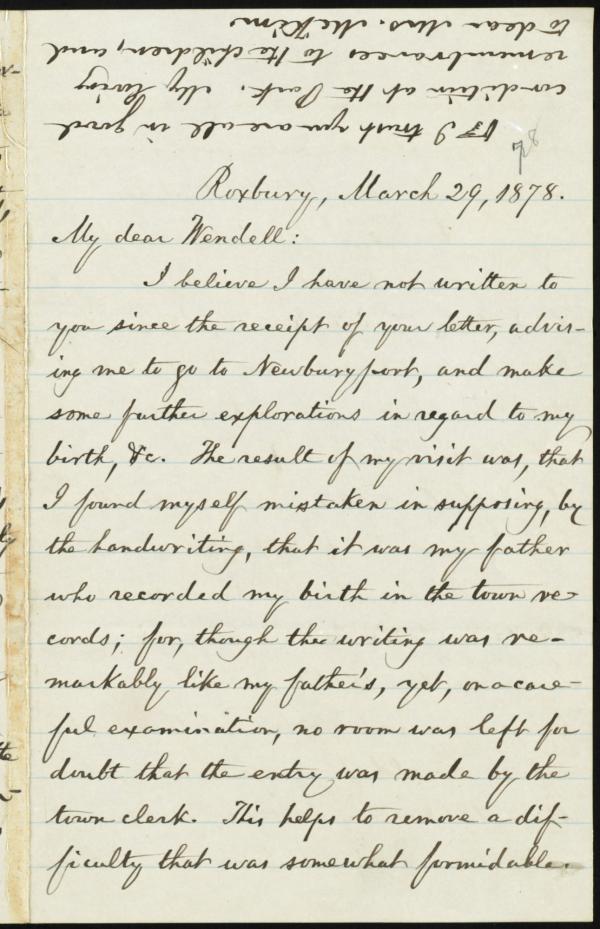 I trust you are all in good
condition at the Park. My loving
remembrances to the children, and
to dear Mrs. McKim
78
Roxbury, March 29, 1878.
My dear Wendell:
I believe I have not written to
you since the receipt of your letter, advis-
ing me to go to Newburyport, and make
some further explorations in regard to my
birth, &c. The result of my visit was, that
I found myself mistaken in supposing, by
the handwriting, that it was my father
who recorded my birth in the town re-
cords; for, though the writing was re-
markably like my father's, yet, on a care-
ful examination, no room was left for
doubt that the entry was made by the
town clerk. This helps to remove a dif-
ficulty that was somewhat formidable.